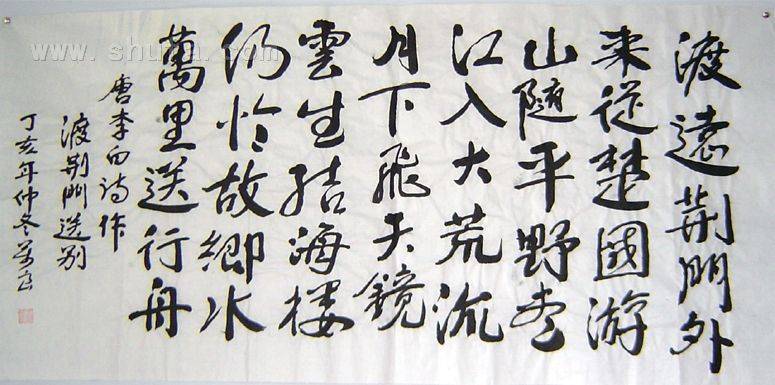 渡遠荊門外
来從楚國游
山隨平野尽
江入大荒流
月下飛天鏡
雲生結海楼
仍怜故鄉水
萬里送行舟
唐李白詩作
渡荊門送别
丁亥年仲冬